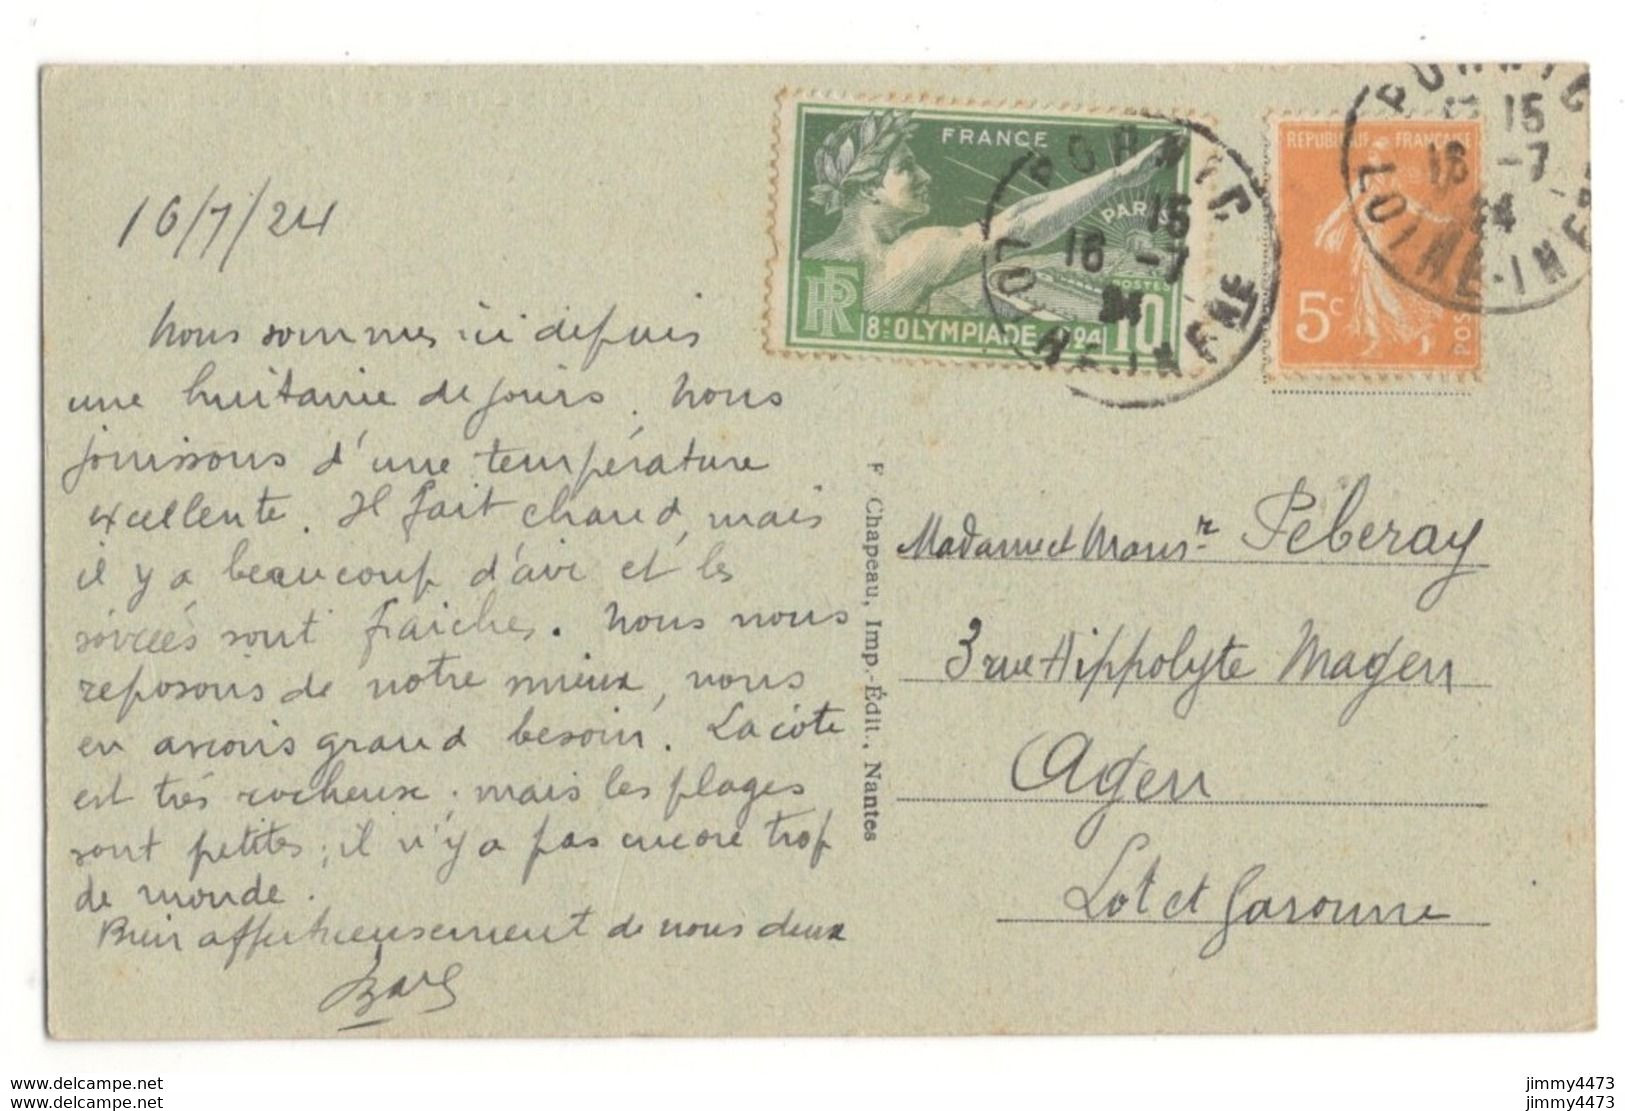 16/7/24
Nous sommes ici depuis
une huitaine de jours. Nous
jouissons d'une température
excellente. Il fait chaud, mais
il y a beaucoup d'air et les
soirées sont fraiches. Nous nous
reposons de notre mieux, nous
en avions grand besoin. La côte
est très rocheuse. mais les plages
sont petites; il n'y a pas encore trop
de monde.
Bien affectueusement de nous deux
FRANCE
PARIS
POSTES
RF
8e OLYMPIADE 1924
10
PORNIC
15
16 -7
24
LOIRE-INFRE
REPUBLIQUE FRANÇAISE
5c
POSTES
PORNIC
15
16 -7
24
LOIRE-INFRE
F Chapeau, Imp.-Édit., Nantes
Madame et Monsr Péberay
3 rue Hippolyte Magen
Agen
Lot et Garonne
www.delcampe.net
www.delcampe.net
jimmy4473
jimmy4473